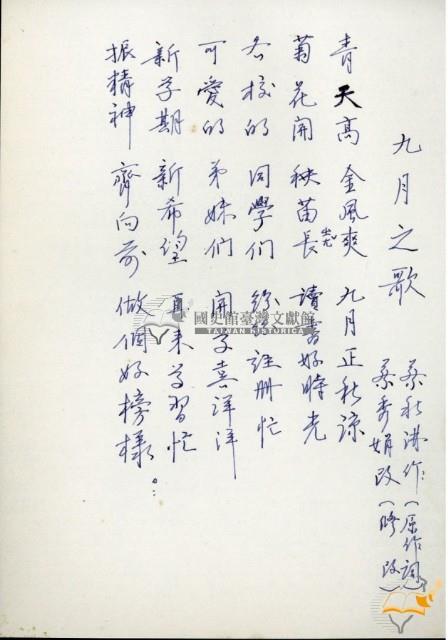 九月之歌
蔡秋洪作(原作詞)
蔡秀娟改(略改)
青天高 金風爽 九月正秋涼
菊花開 秧苗長 讀書好時光
各校的 同學們 紛紛註冊忙
可愛的 弟妹們 開学喜洋洋
新学期 新希望 再来学習忙
振精神 齊向前 做個好榜樣。
國史館臺灣文獻館
TAIWAN HISTORICA